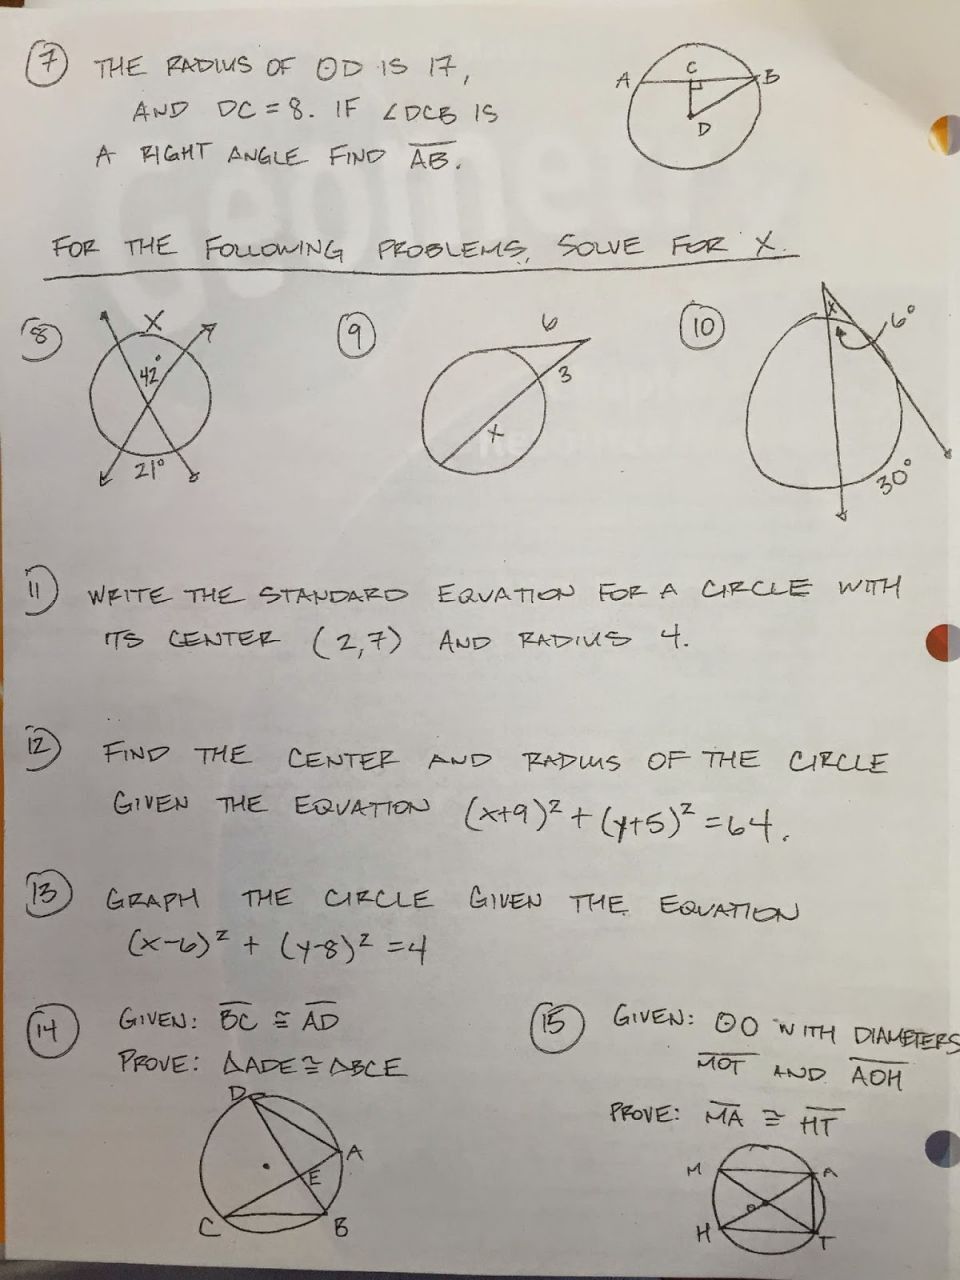 7 THE RADIUS OF ⊙D IS 17,
AND DC = 8. IF ∠DCB IS
A RIGHT ANGLE FIND AB.
A C B
D
FOR THE FOLLOWING PROBLEMS, SOLVE FOR X.
8 X
42°
21°
9 6
3
X
10 X 6°
30°
11 WRITE THE STANDARD EQUATION FOR A CIRCLE WITH
ITS CENTER (2,7) AND RADIUS 4.
12 FIND THE CENTER AND RADIUS OF THE CIRCLE
GIVEN THE EQUATION (x+9)² + (y+5)² = 64.
13 GRAPH THE CIRCLE GIVEN THE EQUATION
(x-6)² + (y-8)² = 4
14 GIVEN: BC ≅ AD
PROVE: △ADE ≅ △BCE
D
A
E
C B
15 GIVEN: ⊙O WITH DIAMETERS
MOT AND AOH
PROVE: MA ≅ HT
M A
O
H T
Geomet